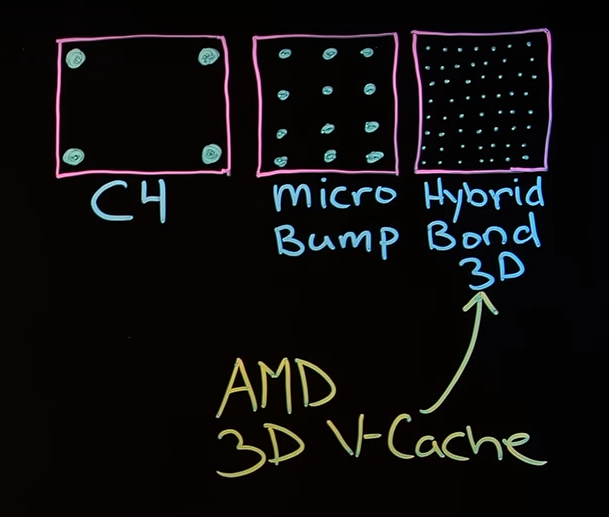 C4
Micro
Bump
Hybrid
Bond
3D
AMD
3D V-Cache